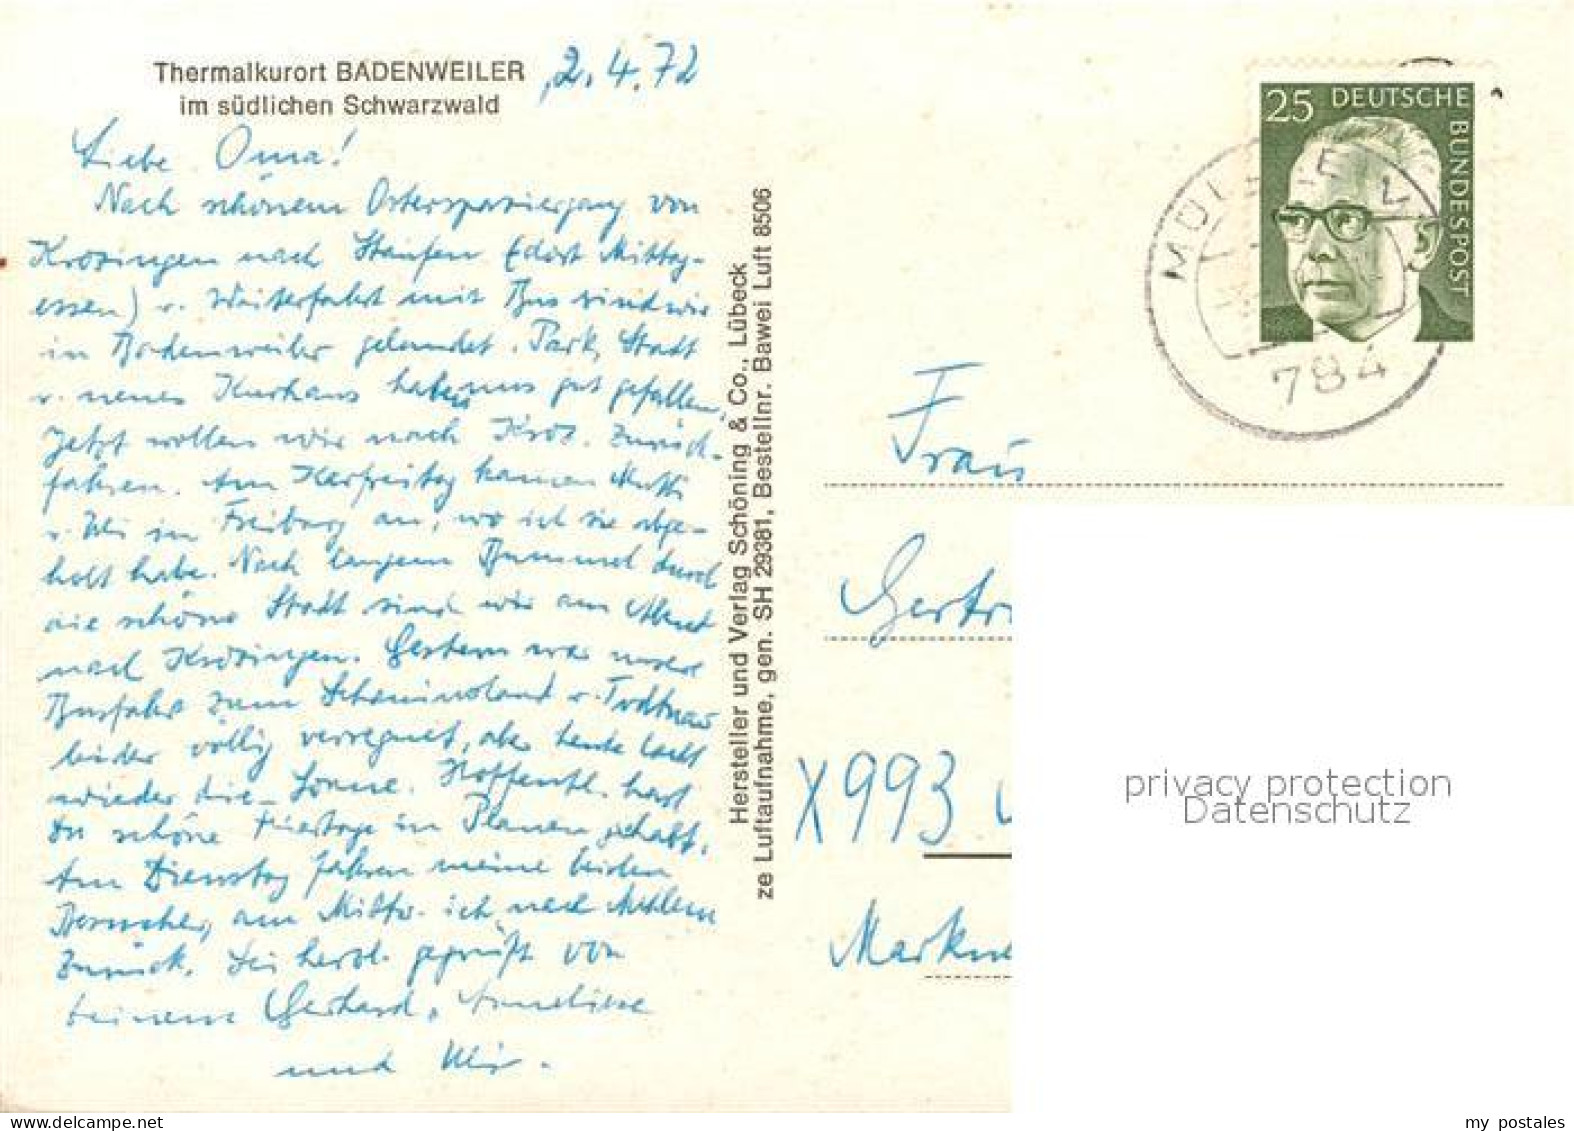 Thermalkurort BADENWEILER
im südlichen Schwarzwald
2.4.72
Liebe Oma!
Nach schönem Osterspaziergang von
Krozingen nach Staufen (dort Mittag-
essen) u. Weiterfahrt mit Bus sind wir
in Badenweiler gelandet. Park, Stadt
u. neues Kurhaus haben uns gut gefallen.
Jetzt wollen wir nach Kroz. zurück-
fahren. Am Karfreitag kamen Mutti
u. Uli in Freiburg an, wo ich sie abge-
holt habe. Nach langem Bummel durch
die schöne Stadt sind wir am Abend
nach Krozingen. Gestern war unsere
Busfahrt zum Schauinsland u. Todtnau
leider völlig verregnet, aber heute lacht
wieder die Sonne. Hoffentl. hast
Du schöne Feiertage in Plauen gehabt.
Am Dienstag fahren meine beiden
Besucher, am Mittw. ich nach
zurück. Sei herzl. gegrüßt von
Deinem Gerhard, Anneliese
und Uli.
Hersteller und Verlag Schöning & Co., Lübeck
ze Luftaufnahme, gen. SH 29381, Bestellnr. Bawei Luft 8506
25 DEUTSCHE BUNDESPOST
784
Frau
Gertr
X993
Markne
privacy protection
Datenschutz
my postales